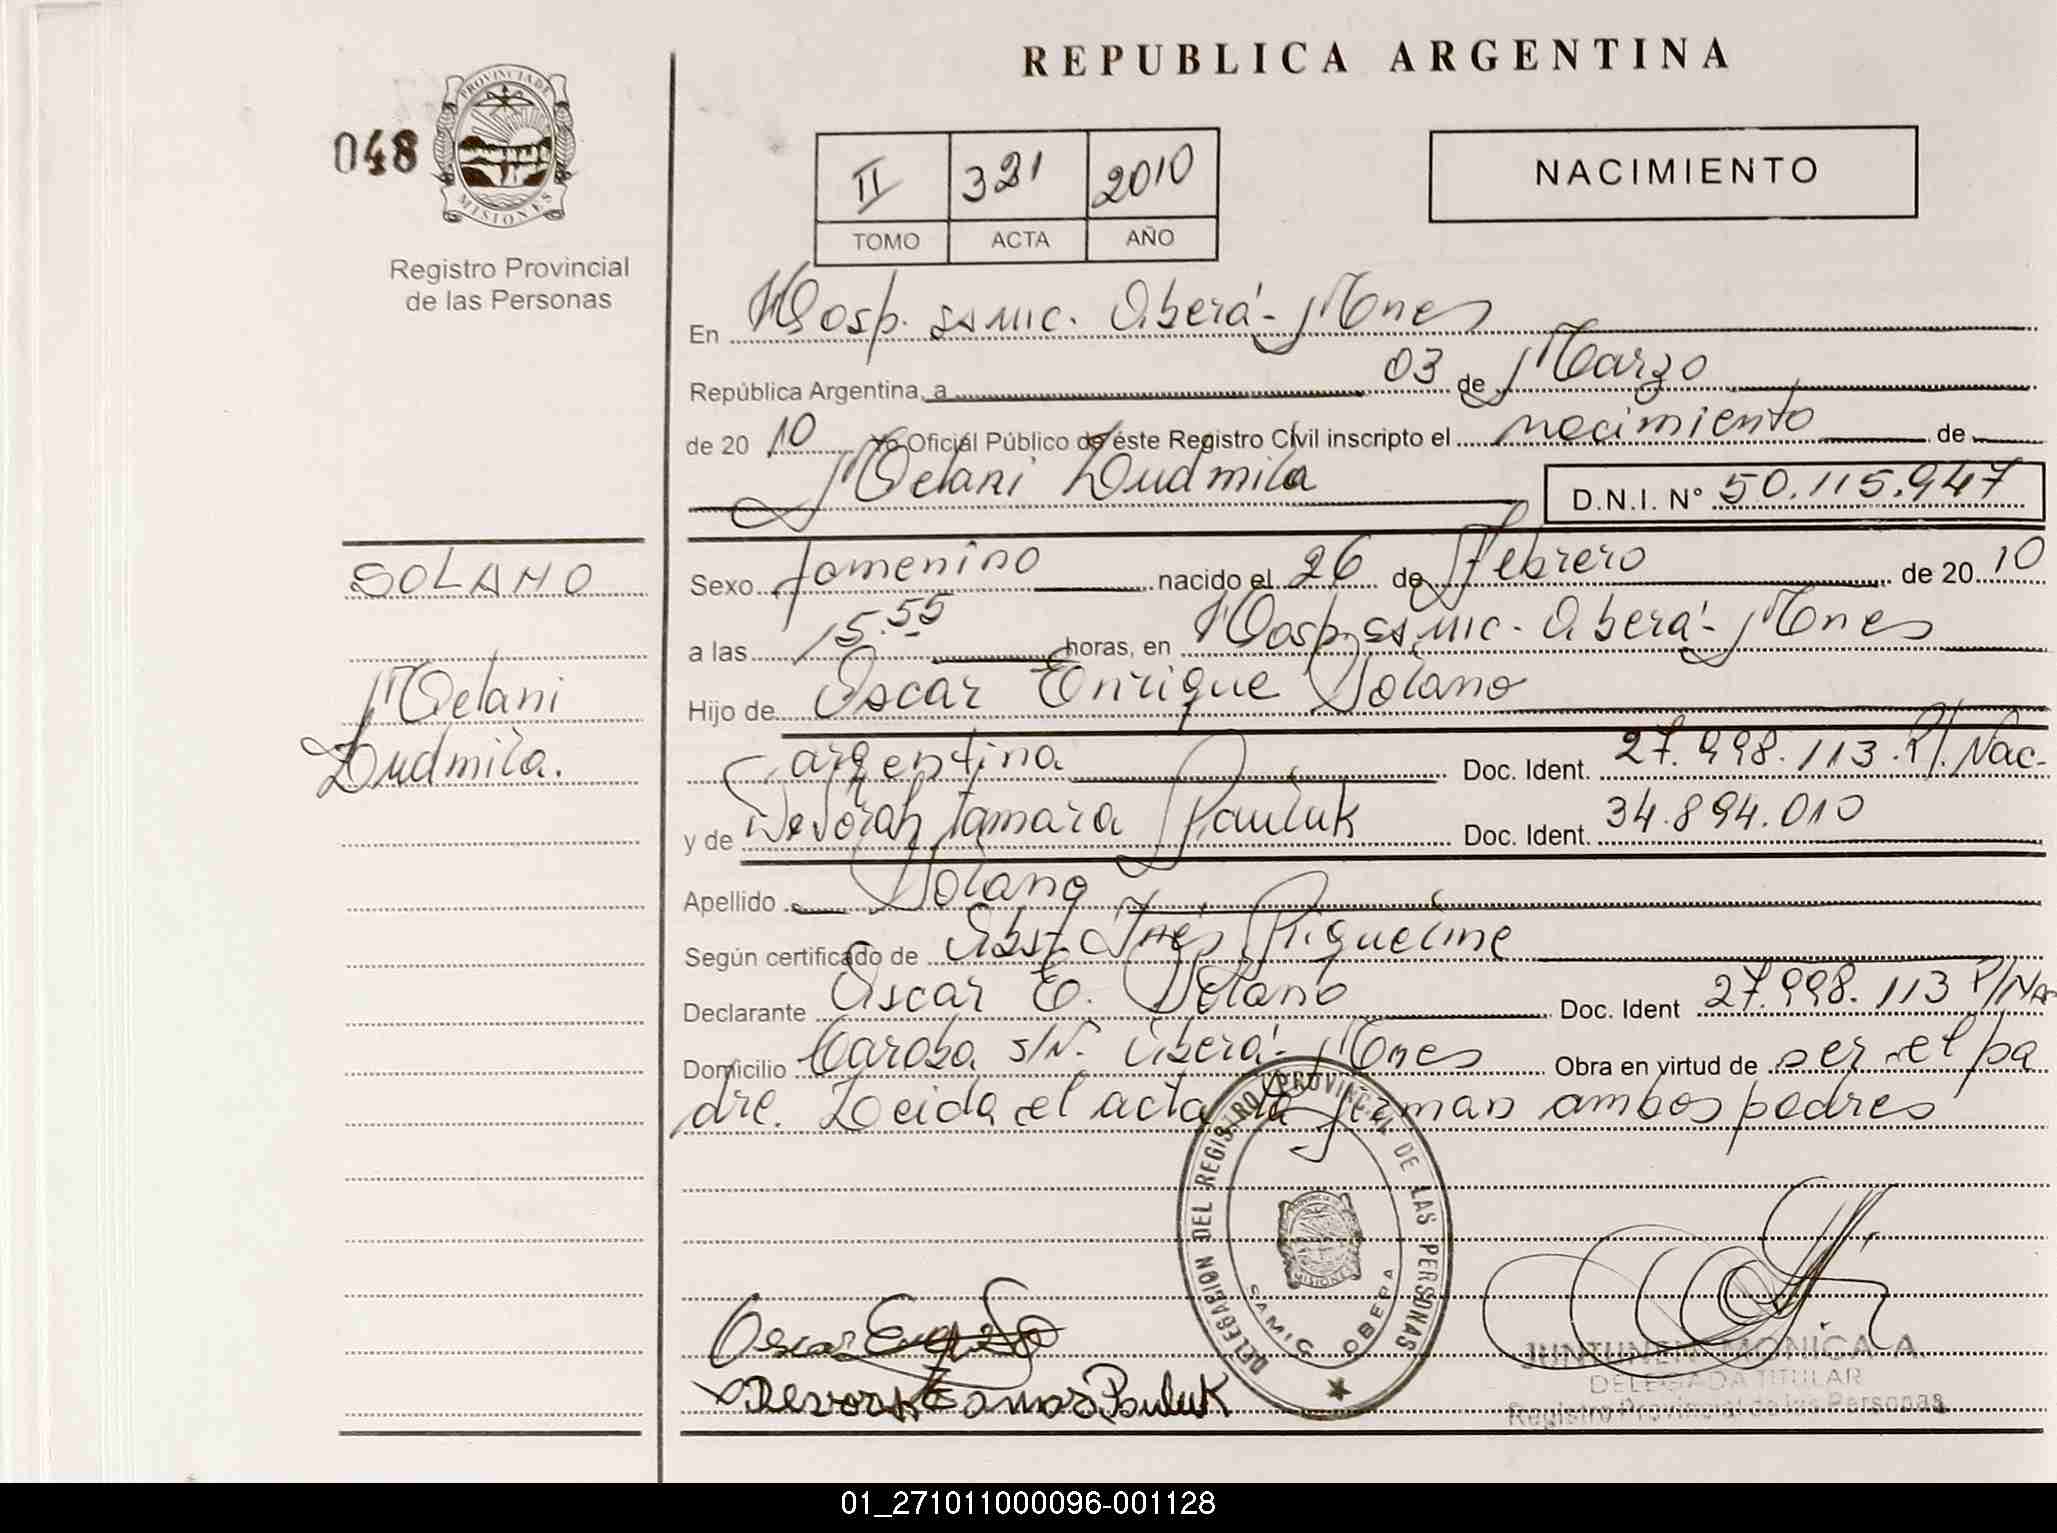 REPUBLICA ARGENTINA
048
PROVINCIA DE
MISIONES
Registro Provincial
de las Personas
II 321 2010
TOMO ACTA AÑO
NACIMIENTO
En Hosp. ssmic. Oberá - Mnes
República Argentina, a 03 de Marzo
de 20 10 Yo Oficial Público de éste Registro Civil inscripto el nacimiento de
Melani Ludmila D.N.I. N° 50.115.947
SOLANO
Melani
Ludmila.
Sexo femenino nacido el 26 de Febrero de 20 10
a las 15.55 horas, en Hosp. ssmic - Oberá - Mnes
Hijo de Oscar Enrique Solano
argentina Doc. Ident. 27.998.113 P/. Nac-
y de Devorah Tamara Pauluk Doc. Ident. 34.894.010
Apellido Solano
Según certificado de Obst. Inés Riquelme
Declarante Oscar E. Solano Doc. Ident 27.998.113 P/Na
Domicilio Caroba s/N. Oberá - Mnes Obra en virtud de ser el pa
dre. Leida el acta la firman ambos padres
DELEGACION DEL REGISTRO PROVINCIAL DE LAS PERSONAS
MISIONES
SAMIC OBERA
Oscar
Devorah Tamar Pauluk
JUNTUNEN MONICA A.
DELEGADA TITULAR
Registro Provincial de las Personas
01_271011000096-001128